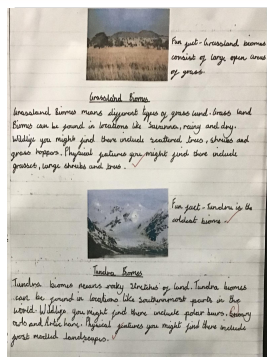 Fun fact - Grassland biomes
consist of large open areas
of grass.
Grassland Biomes
Grassland Biomes means different types of grass land. Grass land
Biomes can be found in locations like Savanna, rainy and dry.
Wildlife you might find there include scattered trees, shrubs and
grass hoppers. Physical features you might find there include
grasses, large shrubs and trees.
Fun fact - Tundra is the
coldest biome.
Tundra Biomes
Tundra biomes means rocky stretches of land. Tundra biomes
can be found in locations like southernmost parts in the
world. Wildlife you might find there include polar bears,
and Artic hare. Physical features you might find there include
frost landscapes.